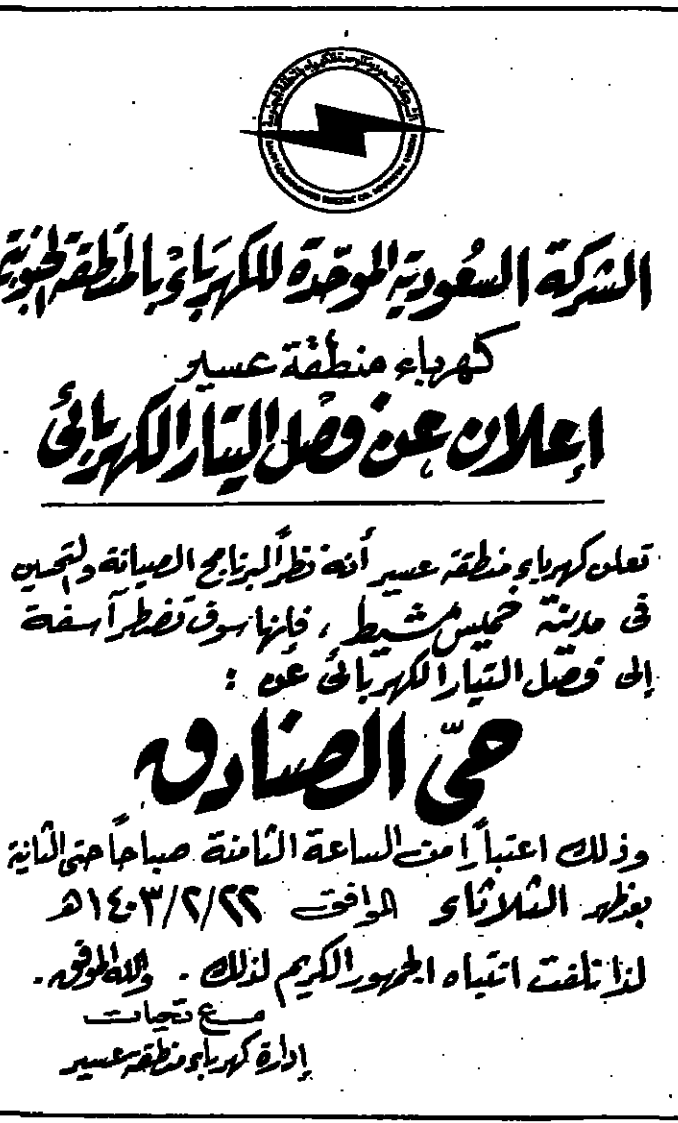 الشركة السعودية الموحدة للكهرباء بالمنطقة الجنوبية
كهرباء منطقة عسير
إعلان عن فصل التيار الكهربائي
تعلن كهرباء منطقة عسير أنه نظراً لبرنامج الصيانة والتحسين
في مدينة خميس مشيط ، فإنها سوف تضطر آسفة
إلى فصل التيار الكهربائي عن :
حيّ الصنادق
وذلك اعتباراً من الساعة الثامنة صباحاً حتى الثانية
بعد ظهر الثلاثاء الموافق ١٤٠٣/٢/٢٢هـ
لذا نلفت انتباه الجمهور الكريم لذلك . والله الموفق .
مع تحيات
إدارة كهرباء منطقة عسير